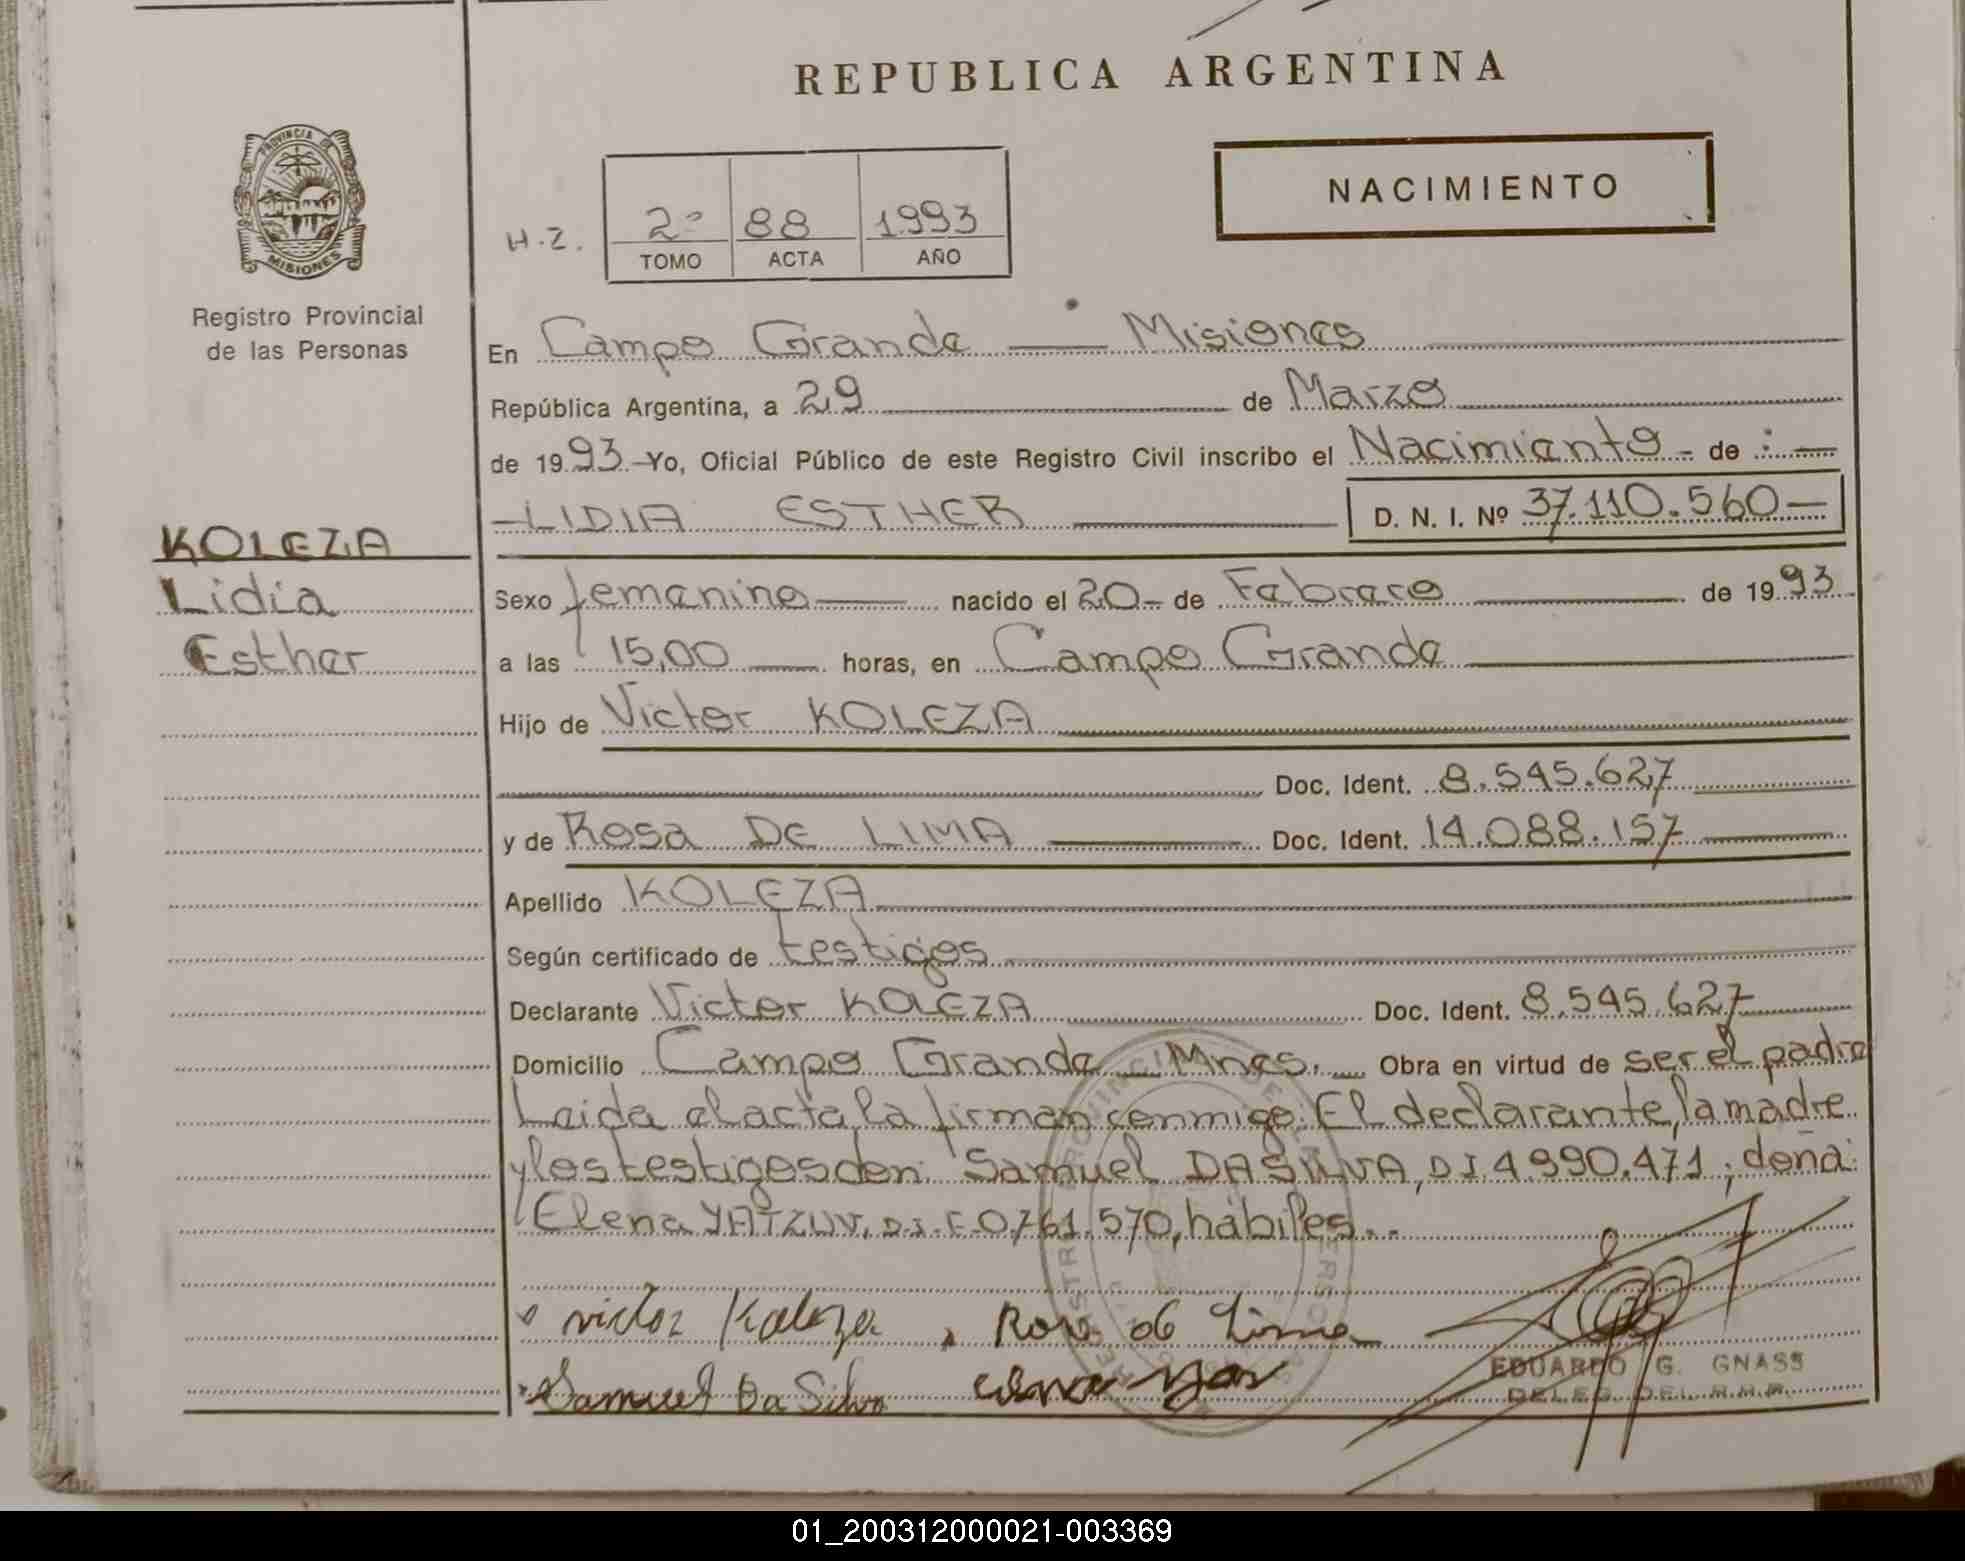 REPUBLICA ARGENTINA
PROVINCIA DE
MISIONES
Registro Provincial
de las Personas
NACIMIENTO
H.Z. 2º 88 1993
TOMO ACTA AÑO
En Campo Grande — Misiones
República Argentina, a 29 de Marzo
de 1993 Yo, Oficial Público de este Registro Civil inscribo el Nacimiento - de :
-LIDIA ESTHER D. N. I. Nº 37.110.560-
KOLEZA
Lidia
Esther
Sexo femenino nacido el 20- de Febrero de 1993
a las 15,00 horas, en Campo Grande
Hijo de Victor KOLEZA
Doc. Ident. 8.545.627
y de Rosa DE LIMA Doc. Ident. 14.088.157
Apellido KOLEZA
Según certificado de testigos
Declarante Victor KOLEZA Doc. Ident. 8.545.627
Domicilio Campo Grande Mnes. Obra en virtud de ser el padre
Leida el acta, la firman conmigo: El declarante, la madre
y los testigos don: Samuel DA SILVA, DI 4.990.471; doña:
Elena YATZUV, D.I. F. 0.761.570, hábiles..
victor Koleza Rosa de Lima
Samuel Da Silva
EDUARDO G. GNASS
DELEG. DEL R.N.P.
01_200312000021-003369